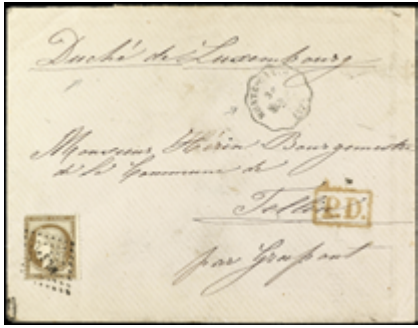 Duché de Luxembourg
Monsieur Hérin Bourgmestre
de la Commune de
P.D.
par Grupont